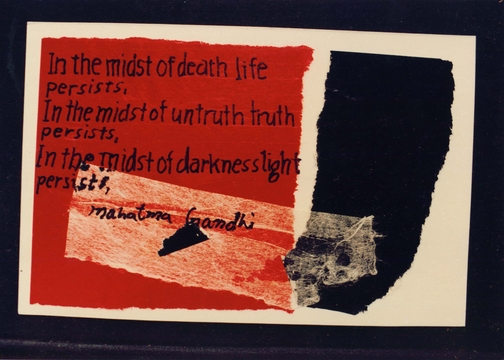 In the midst of death life
persists,
In the midst of untruth truth
persists,
In the midst of darkness light
persists,
mahatma Gandhi